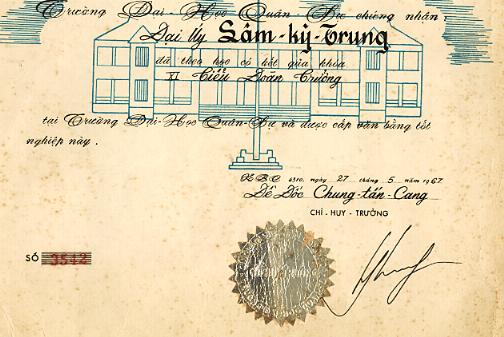 Trường Đại-Học Quân-Sự chứng nhận:
Đại Úy Lâm-kỳ-Trung
đã theo học có kết quả khóa
XI Tiểu Đoàn Trưởng
tại Trường Đại-Học Quân-Sự và được cấp văn bằng tốt
nghiệp này.
K.B.C 4310, ngày 27 tháng 5 năm 1967
Đề Đốc Chung-tấn-Cang
CHỈ-HUY-TRƯỞNG
SỐ 3542